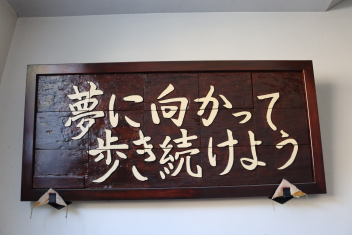 夢に向かって
歩き続けよう